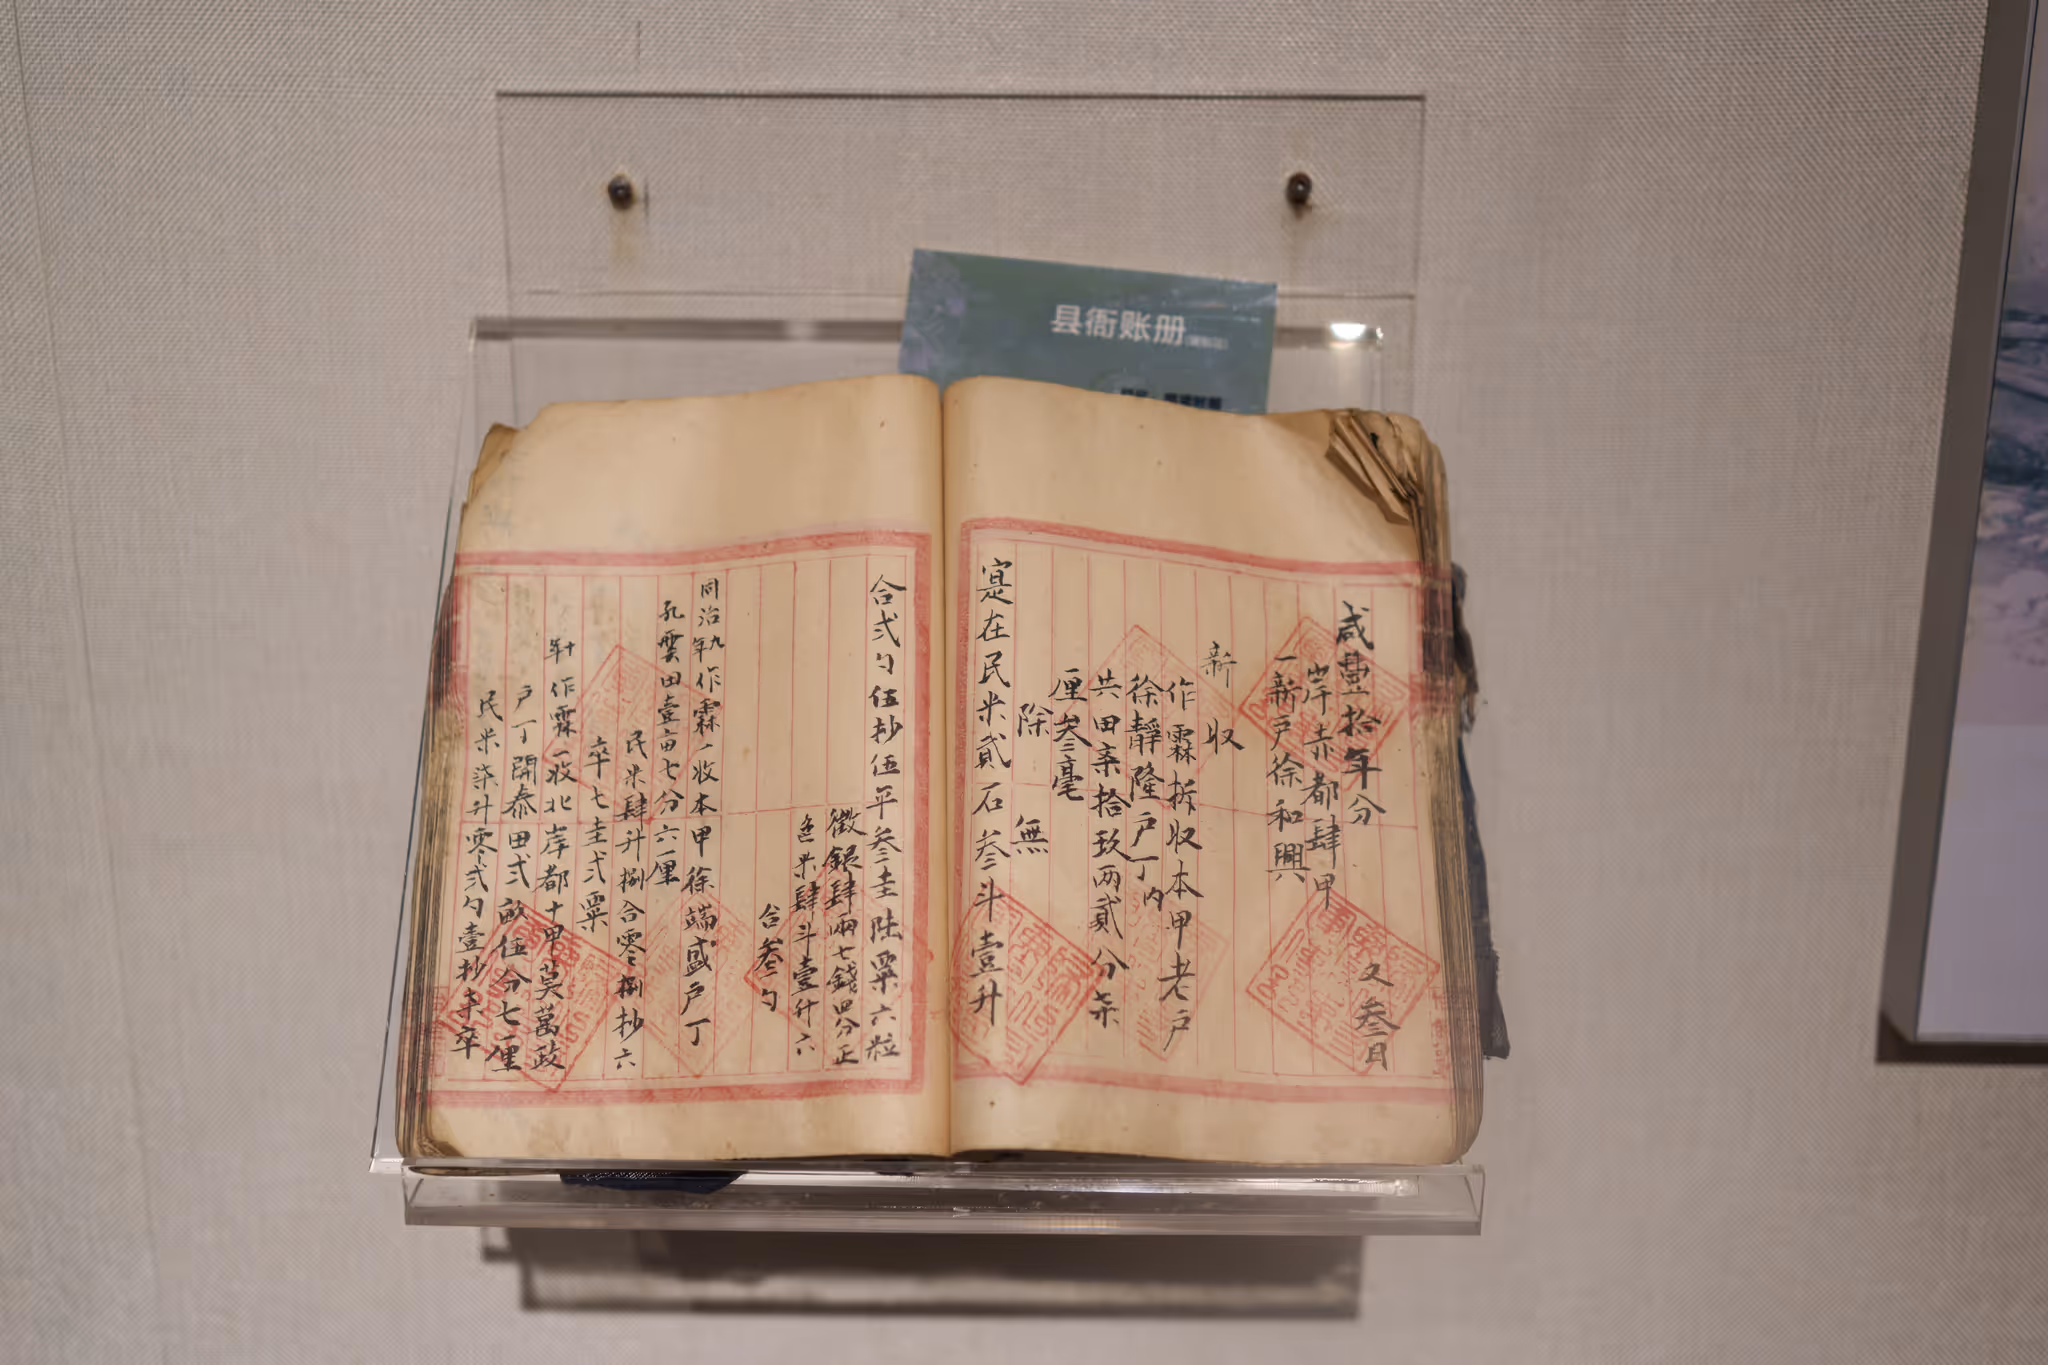 县衙账册
咸豐拾年分 又叁月
岸赤都肆甲
一新戶徐和興
新收
作霖拆收本甲老戶
徐靜隆戶丁內
共田柒拾玖兩貳分柒
厘叁毫
除 無
寔在民米貳石叁斗壹升
合弍勺伍抄伍平叁圭陆粟六粒
徵銀肆兩七錢四分正
色米肆斗壹升六
合叁勺
同治九年作霖一收本甲徐端盛戶丁
孔雲田壹亩七分六厘
民米肆升捌合零捌抄六
卒七圭弍粟
十年作霖一收北岸都十甲莫萬政
戶丁開泰田弍畝伍分七厘
民米柒升零弍勺壹抄柒卒